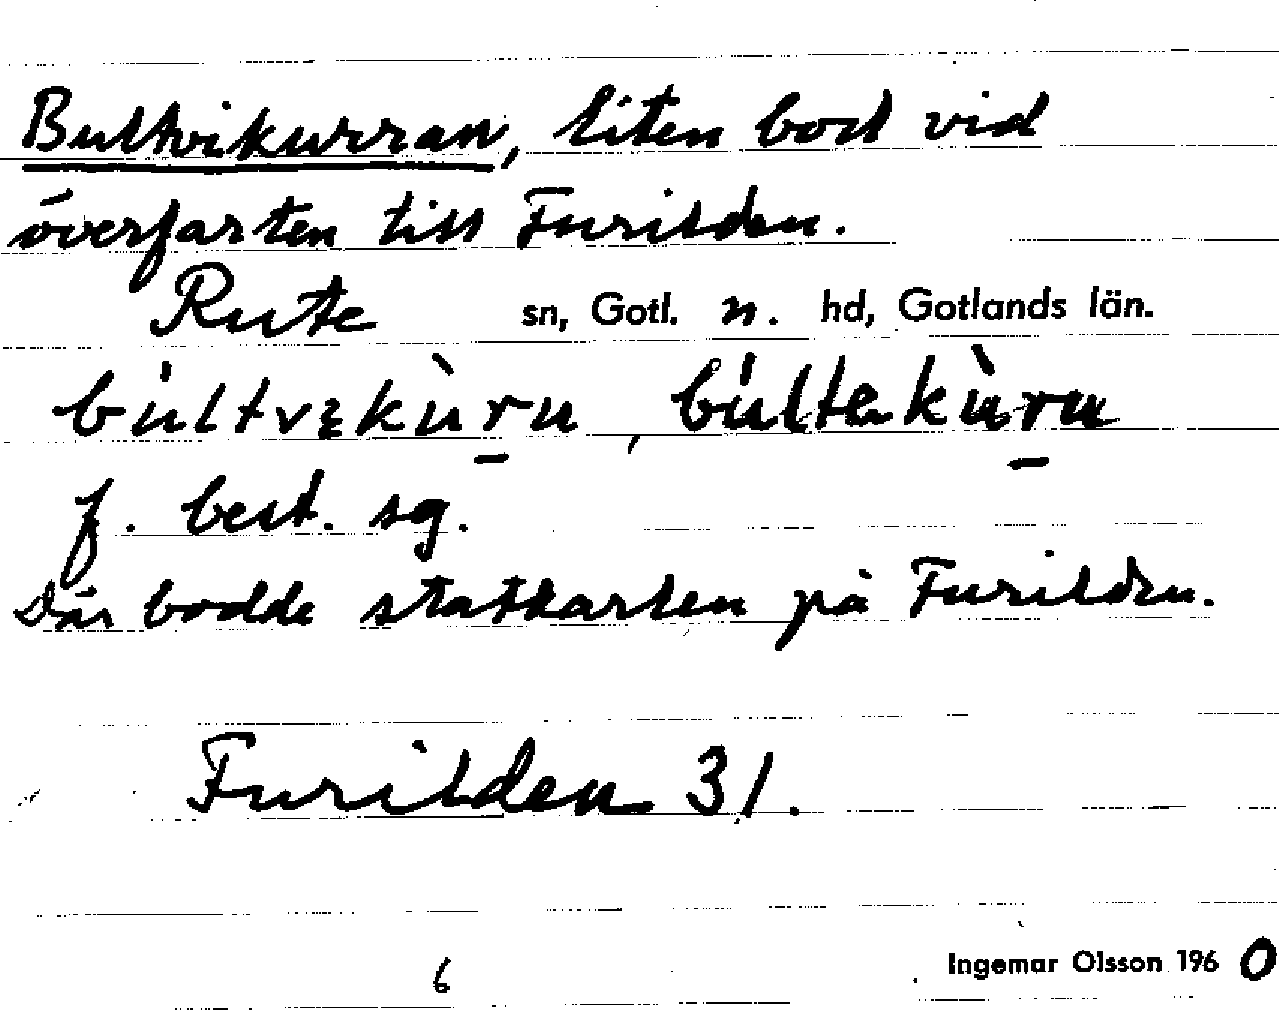 Bultvikurran, liten bod vid
överfarten till Furilden.
Rute sn, Gotl. n. hd, Gotlands län.
bùltvɛkùru, bùltekùru
f. best. sg.
Där bodde statkarlen på Furilden.
Furilden 31.
6
Ingemar Olsson 1960